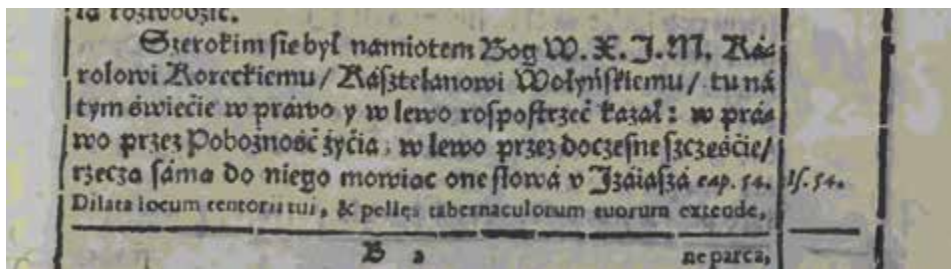 la rozwodzić.
Szerokim sie był namiotem Bog W. X. J. M. Ká-
rolowi Koreckiemu / Kásztelanowi Wołyńskiemu / tu ná
tym świećie w práwo y w lewo rospostrzeć kazał : w prá-
wo przez Pobożność żyćia, w lewo przez doczesne szczęśćie /
rzecza sáma do niego mowiac one słowá v Izáiaszá cap. 54. Is. 54.
Dilata locum tentorii tui, & pelles tabernaculorum tuorum extende,
B 2 ne parca,